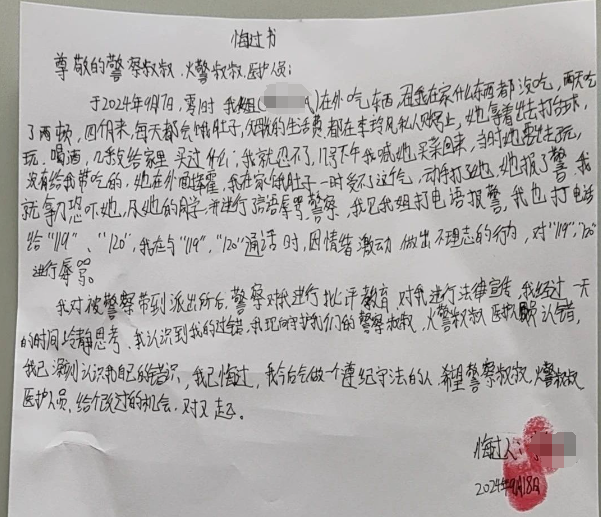 悔过书
尊敬的警察叔叔、火警叔叔、医护人员:
于2024年9月17日,零时 我姐()在外吃东西,因我在家什么东西都没吃,两天吃
了两顿,四个月来,每天都会饿肚子,父亲的生活费都在私人账号上,她拿着出去打台球,
玩、喝酒,几乎没给家里买过什么;我就忍不了,17号下午我喊她买菜回来,当时她要出去玩,
没有给我带吃的,她在外面挥霍,我在家饿肚子一时受不了这个气,动手打了她,她报了警,我
就拿刀恐吓她,及她的用字,并进行言语辱骂警察,我见我姐打电话报警,我也打电话
给"119"、"120",我在与"119","120"通话时,因情绪激动做出不理志的行为,对"119","120"
进行辱骂。
我对被警察带到派出所后,警察对我进行批评教育,对我进行法律宣传,我经过一天
的时间冷静思考、我认识到我的过错,我现向守护我们的警察叔叔,火警叔叔医护人员认错,
我已深刻认识我自己的错识,我已悔过,我今后会做一个遵纪守法的人,希望警察叔叔,火警叔叔
医护人员,给个改过的机会.对又起。
悔过人:
2024年9月18日